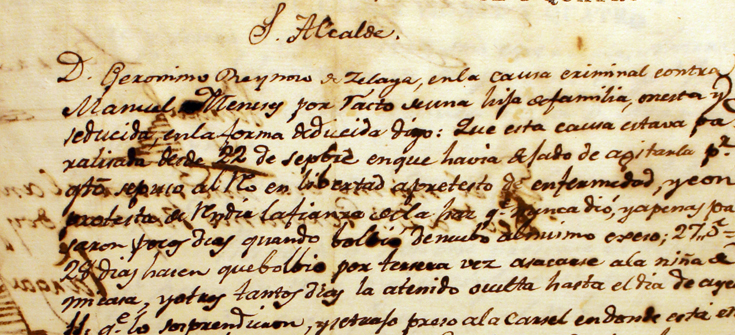 S. Alcalde.
D. Geronimo Reynoso de Zelaya, en la causa criminal contra
Manuel Meneses por Tacto de una hija de familia, onesta y
seducida, en la forma deducida digo: Que esta causa estava pa
ralisada desde 22 de Septbre en que havia dejado de agitarla pr.
qto. se puso al Reo en libertad a pretesto de enfermedad, y con
protesta de rendir la fianza de la haz qe. nunca dió, y apenas pa
saron pocos dias quando bolbió de nuebo al mismo exeso; 27 5
28 dias hacen que bolbio por tersera vez a sacarse a la niña de
mi casa, y otros tantos dias la a tenido oculta hasta el dia de ayer
11. qe. lo sorprendieron, y se trajo preso a la Carsel en donde está en